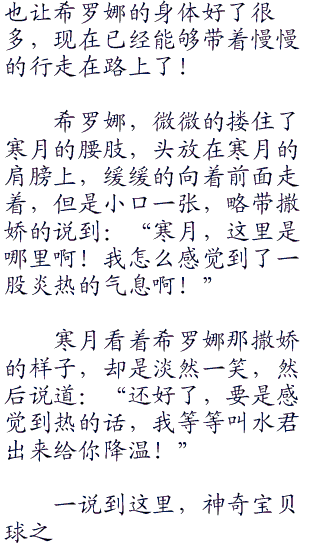 也让希罗娜的身体好了很
多，现在已经能够带着慢慢
的行走在路上了！
希罗娜，微微的搂住了
寒月的腰肢，头放在寒月的
肩膀上，缓缓的向着前面走
着，但是小口一张，略带撒
娇的说到：“寒月，这里是
哪里啊！我怎么感觉到了一
股炎热的气息啊！”
寒月看着希罗娜那撒娇
的样子，却是淡然一笑，然
后说道：“还好了，要是感
觉到热的话，我等等叫水君
出来给你降温！”
一说到这里，神奇宝贝
球之